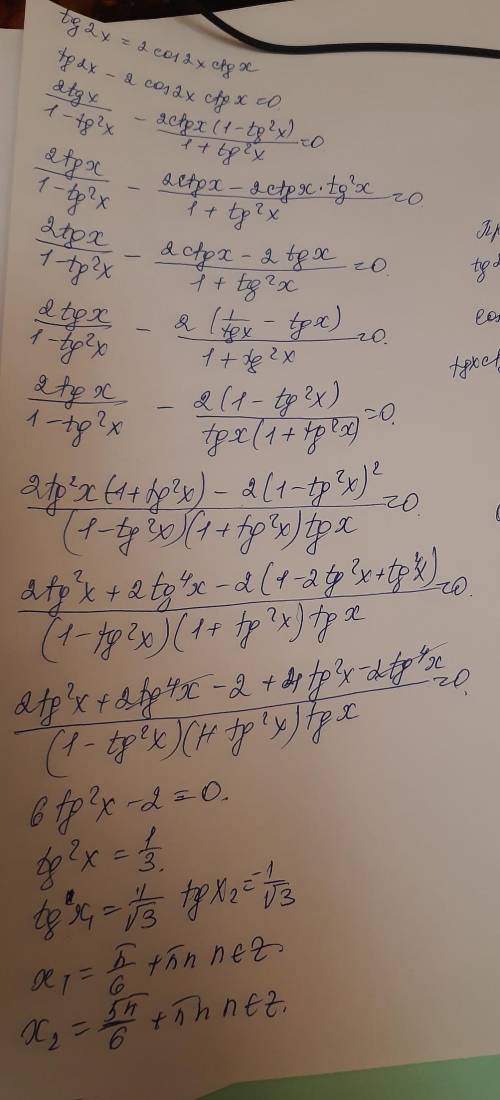 tg2x = 2cos2x ctgx
tg2x - 2cos2x ctgx = 0
2tgx/(1-tg²x) - 2ctgx(1-tg²x)/(1+tg²x) = 0
2tgx/(1-tg²x) - (2ctgx - 2ctgx·tg²x)/(1+tg²x) = 0
2tgx/(1-tg²x) - (2ctgx - 2tgx)/(1+tg²x) = 0.
2tgx/(1-tg²x) - 2(1/tgx - tgx)/(1+tg²x) = 0.
2tgx/(1-tg²x) - 2(1-tg²x)/(tgx(1+tg²x)) = 0.
(2tg²x(1+tg²x) - 2(1-tg²x)²)/((1-tg²x)(1+tg²x)tgx) = 0.
(2tg²x + 2tg⁴x - 2(1-2tg²x+tg⁴x))/((1-tg²x)(1+tg²x)tgx) = 0.
(2tg²x + 2tg⁴x - 2 + 4tg²x - 2tg⁴x)/((1-tg²x)(1+tg²x)tgx) = 0.
6tg²x - 2 = 0.
tg²x = 1/3.
tgx₁ = 1/√3 tgx₂ = -1/√3
x₁ = π/6 + πn n∈Z.
x₂ = 5π/6 + πn n∈Z.
Пр
tg2
cos
tgxct